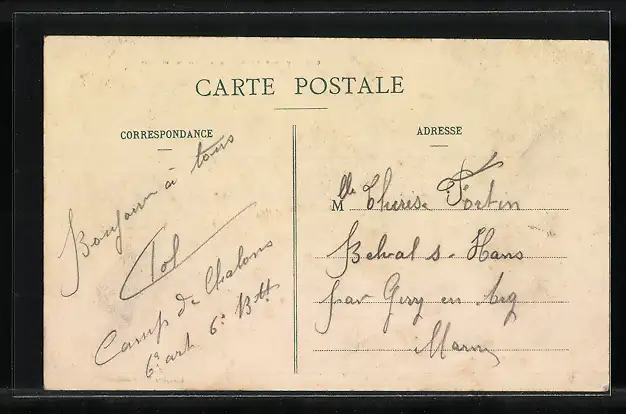 CARTE POSTALE
CORRESPONDANCE
Bonjour à tous
Tol
Camp de Chalons
6e art 6e Btt
ADRESSE
Mlle Therese Fortin
Belval s. Hans
par Givry en Arg
Marne